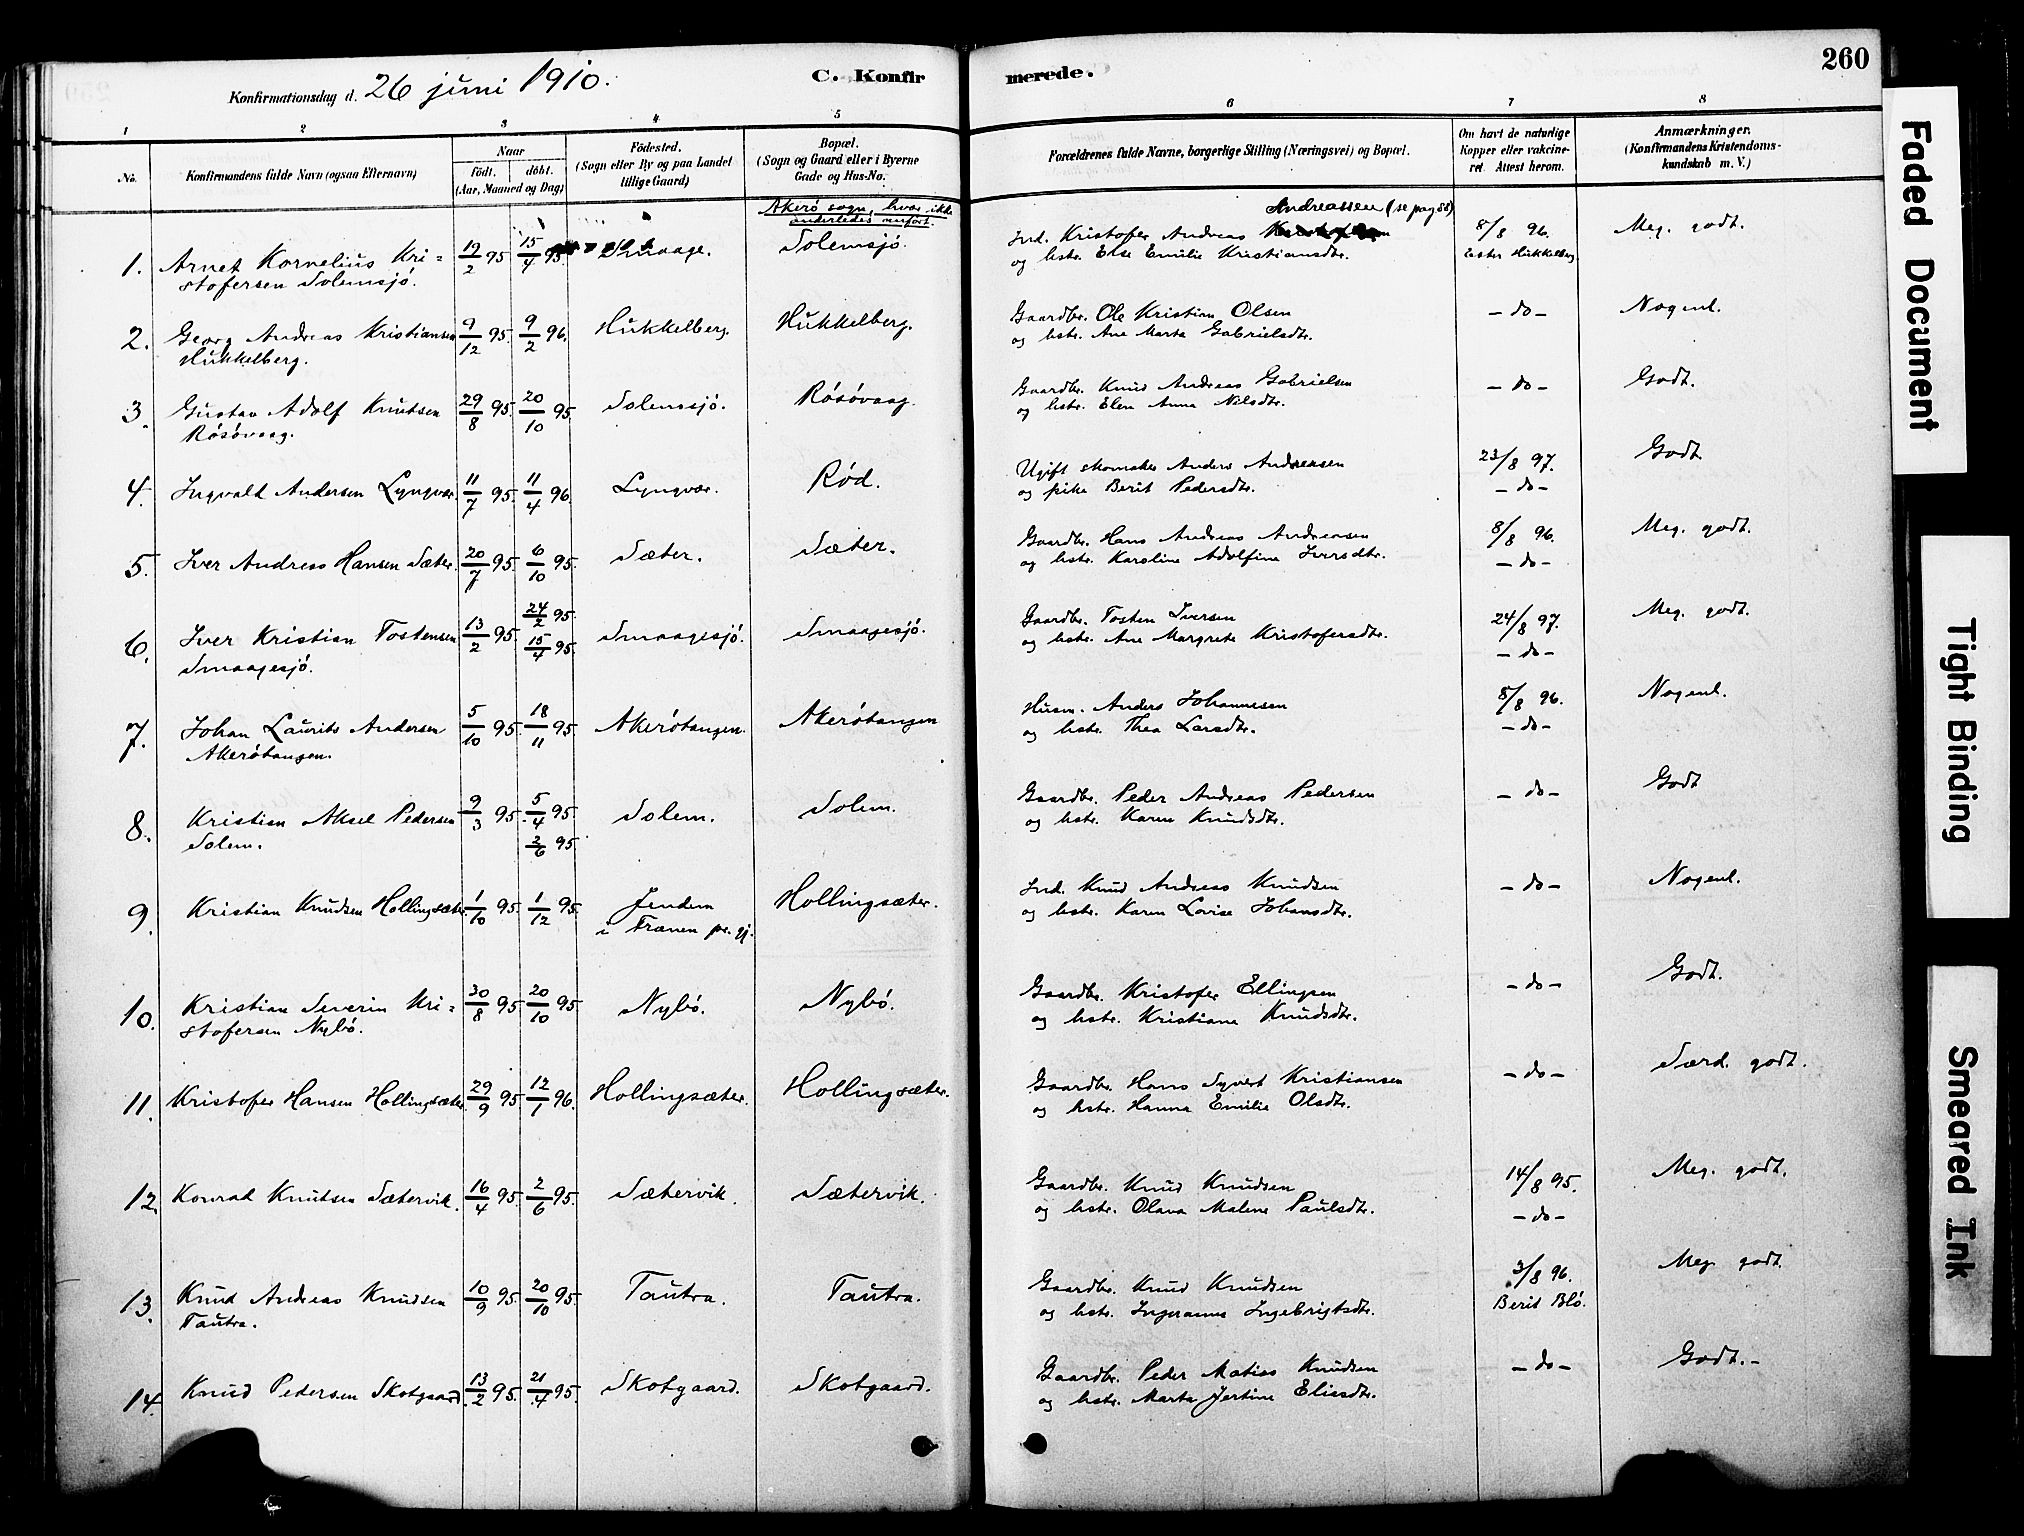 260
Konfirmationsdag d. 26 juni 1910.
C. Konfir
merede.
1 2 3 4 5 6 7 8
No.
Konfirmandens fulde Navn (ogsaa Efternavn)
Naar
født. døbt.
(Aar, Maaned og Dag)
Födested.
(Sogn eller By og paa Landet
tillige Gaard)
Bopæl.
(Sogn og Gaard eller i Byerne
Gade og Hus-No.
Forældrenes fulde Navne, borgerlige Stilling (Næringsvei) og Bopæl.
Om havt de naturlige
Kopper eller vakcine-
ret. Attest herom.
Anmærkninger.
(Konfirmandens Kristendoms-
kundskab m. V.)
Akerø sogn, hvor ikke
anderledes anført.
Andreassen (se pag 88)
1. Arnet Kornelius Kri- 19/2 95 15/4 95. Smaage. Solemsjø. Ind. Kristofer Andreas 8/8 96. Meg. godt.
stofersen Solemsjø. og hstr. Else Emilie Kristiansdtr. Ester Hukkelberg
2. Georg Andreas Kristiansen 9/12 95. 9/2 96. Hukkelberg. Hukkelberg. Gaardbr. Ole Kristian Olsen - do - Nogenl.
Hukkelberg. og hstr. Ane Marta Gabrielsdtr.
3. Gustav Adolf Knutsen 29/8 95. 20/10 95. Solemsjø. Røsövaag. Gaardbr. Knud Andreas Gabrielsen - do - Godt.
Røsövaag. og hstr. Elen Anna Nilsdtr.
4. Ingvald Andersen Lyngvær. 11/7 95. 11/4 96. Lyngvær. Rød. Ugift skomaker Anders Andreasen 23/8 97. Godt
og pike Berit Pedersdtr. - do -
5. Iver Andreas Hansen Sæter. 20/7 95. 6/10 95. Sæter. Sæter. Gaardbr. Hans Andreas Andreasen 8/8 96. Meg. godt.
og hstr. Karoline Adolfine Iversdtr. - do -
6. Iver Kristian Tostensen 13/2 95. 24/2 95. 15/4 95. Smaagesjø. Smaagesjø. Gaardbr. Tosten Iversen 24/8 97. Meg. godt.
Smaagesjø. og hstr. Ane Margrete Kristofersdtr. - do -
7. Johan Laurits Andersen 5/10 95. 18/11 95. Akerøtangen. Akerøtangen Husm. Anders Johannesen 8/8 96. Nogenl.
Akerøtangen. og hstr. Thea Larsdtr. - do -
8. Kristian Aksel Pedersen 9/3 95. 5/4 95. 2/6 95 Solem. Solem. Gaardbr. Peder Andreas Pedersen - do - Godt
Solem. og hstr. Karen Knudsdtr.
9. Kristian Knudsen Hollingsæter. 1/10 95. 1/12 95. Jendem Hollingsæter. Ind. Knud Andreas Knudsen - do - Nogenl.
i Frænen pr. gj. og hstr. Karen Lovise Johansdtr.
10. Kristian Severin Kri- 30/8 95. 20/10 95. Nybø. Nybø. Gaardbr. Kristofer Ellingsen - do - Godt.
stofersen Nybø. og hstr. Kristiane Knudsdtr.
11. Kristofer Hansen Hollingsæter 29/9 95. 12/1 96. Hollingsæter. Hollingsæter. Gaardbr. Hans Syvert Kristiansen - do - Særd. godt.
og hstr. Hanna Emilie Olsdtr.
12. Konrad Knutsen Sætervik. 16/4 95. 2/6 95. Sætervik. Sætervik. Gaardbr. Knud Knudsen 14/8 95. Meg. godt.
og hstr. Olava Malene Paulsdtr. - do -
13. Knud Andreas Knudsen 10/9 95. 20/10 95. Tautra. Tautra. Gaardbr. Knud Knudsen 3/8 96. Meg. godt.
Tautra. og hstr. Ingeranna Ingebrigtsdtr. Berit Blø.
14. Knud Pedersen Skotgaard. 13/2 95. 21/4 95. Skotgaard. Skotgaard. Gaardbr. Peder Matias Knudsen - do - Godt.-
og hstr. Marta Jertine Eliasdtr.
Faded Document
Tight Binding
Smeared Ink